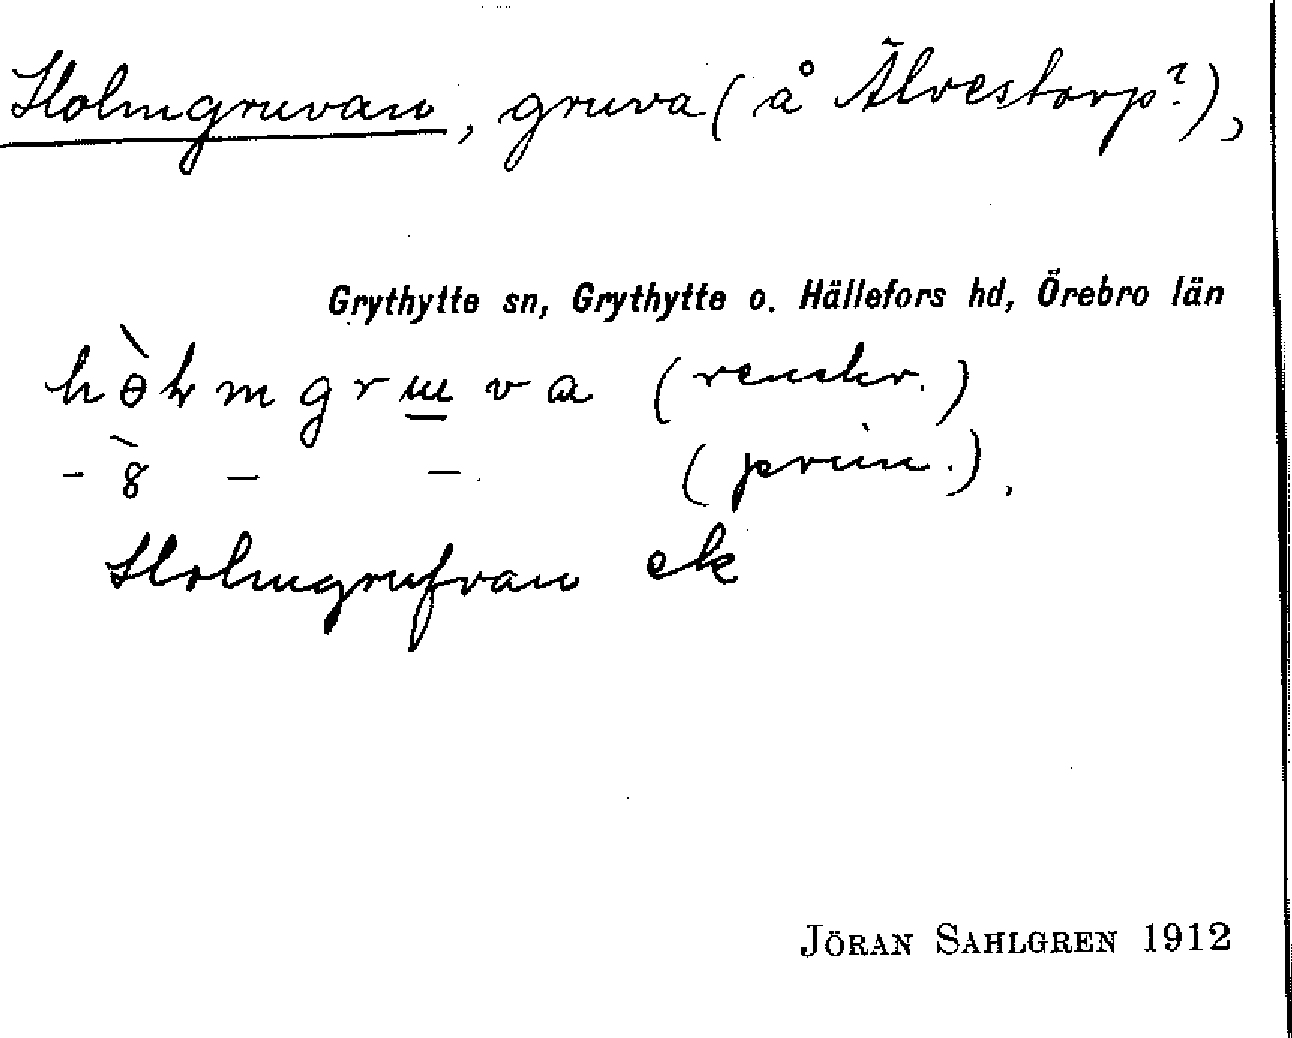 Holmgruvan, gruva (å Älvestorp?),
Grythytte sn, Grythytte o. Hällefors hd, Örebro län
(renskr.)
(prim.).
Holmgrufvan ek
JÖRAN SAHLGREN 1912